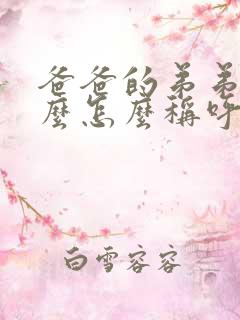 爸爸的弟弟
麼怎麼稱呼
白雪容容